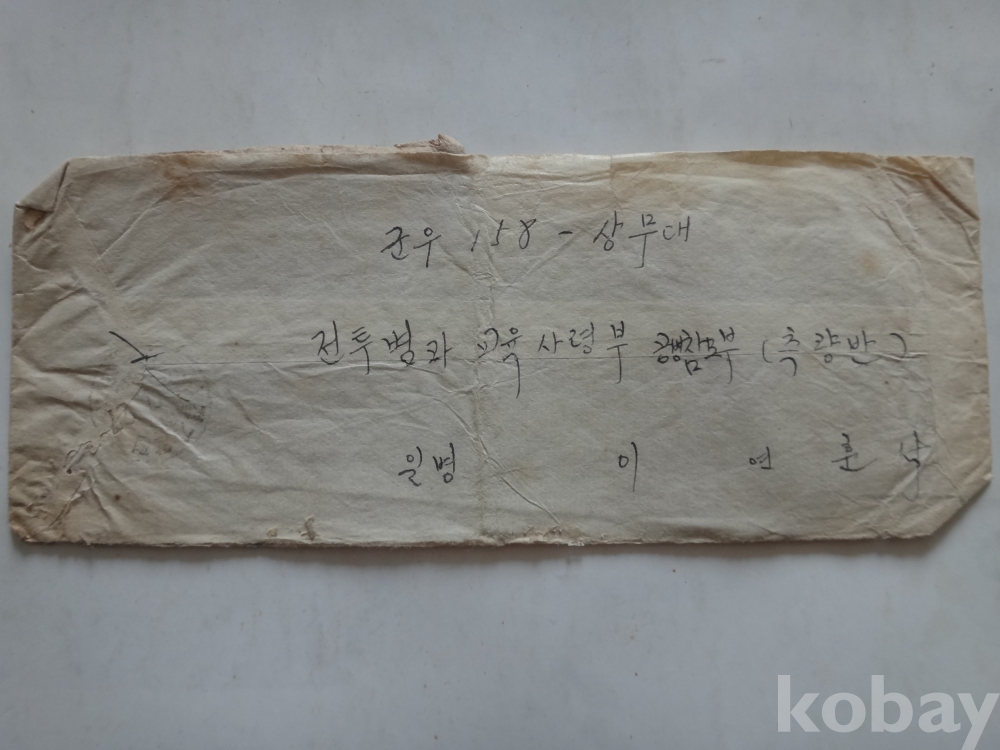 군우 158 - 상무대
전투병과 교육사령부 공병참모부 (측량반)
일병 이 연 훈 납
kobay